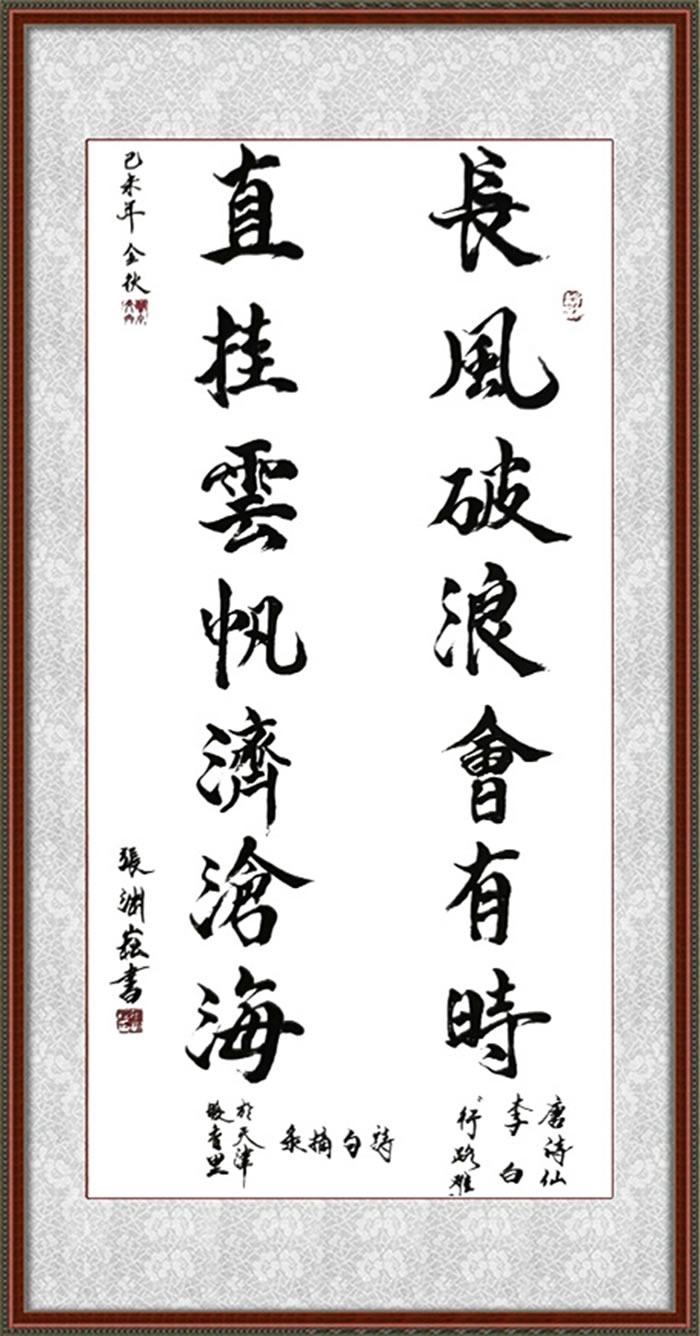 長風破浪會有時
直挂雲帆濟滄海
唐詩仙
李白
行路難
詩句摘录
於天津
己未年金秋
張渊 書